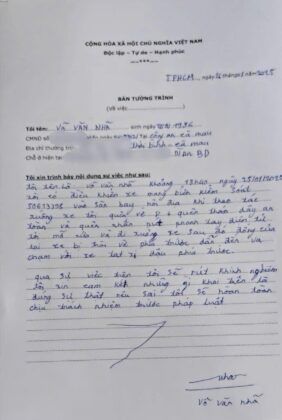 CỘNG HÒA XÃ HỘI CHỦ NGHĨA VIỆT NAM
Độc lập - Tự do - Hạnh phúc
---***---
TPHCM, ngày 26 tháng 01 năm 2025
BẢN TƯỜNG TRÌNH
(Về việc
Tôi tên: Võ Văn Nhã sinh ngày
CMND số cấp tại công an cà mau
Địa chỉ thường trú: Thới bình - cà mau
Chỗ ở hiện tại: Dĩ an BD
Tôi xin trình bày nội dung sự việc như sau:
Tôi tên là võ văn nhã khoảng ngày 25/01/2025
tôi có điều khiển xe mang biển kiểm soát
vào sân bay nội địa khi thao tác
xuống xe tôi quên về p và quên thắng dây an
toàn và quên nhấn nút phanh tay điện tử
tôi mở cửa và đi xuống xe sau đó đồng của
tôi xe bị trôi về phía trước dẫn đến va
chạm với xe taxi đậu phía trước.
qua sự việc trên tôi sẽ rút kinh nghiệm
tôi xin cam kết những gì khai trên là
đúng sự thật nếu sai tôi sẽ hoàn toàn
chịu trách nhiệm trước pháp luật
nhã
võ văn nhã